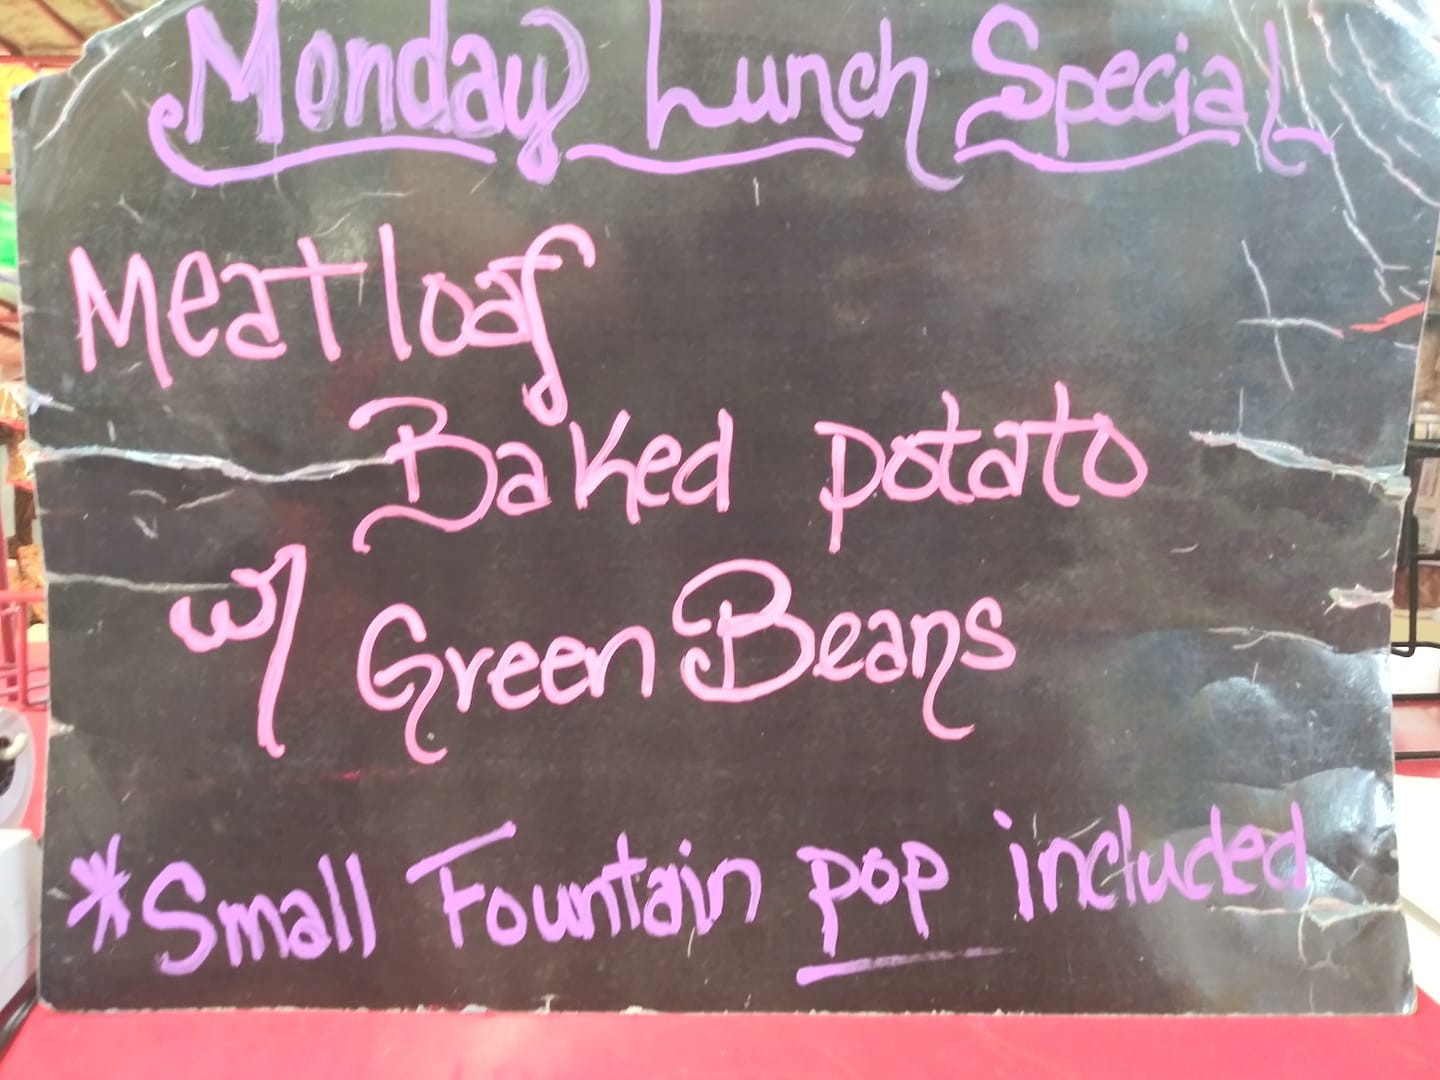 Monday Lunch Special
Meatloaf
Baked potato
w/ Green Beans
*Small Fountain pop included